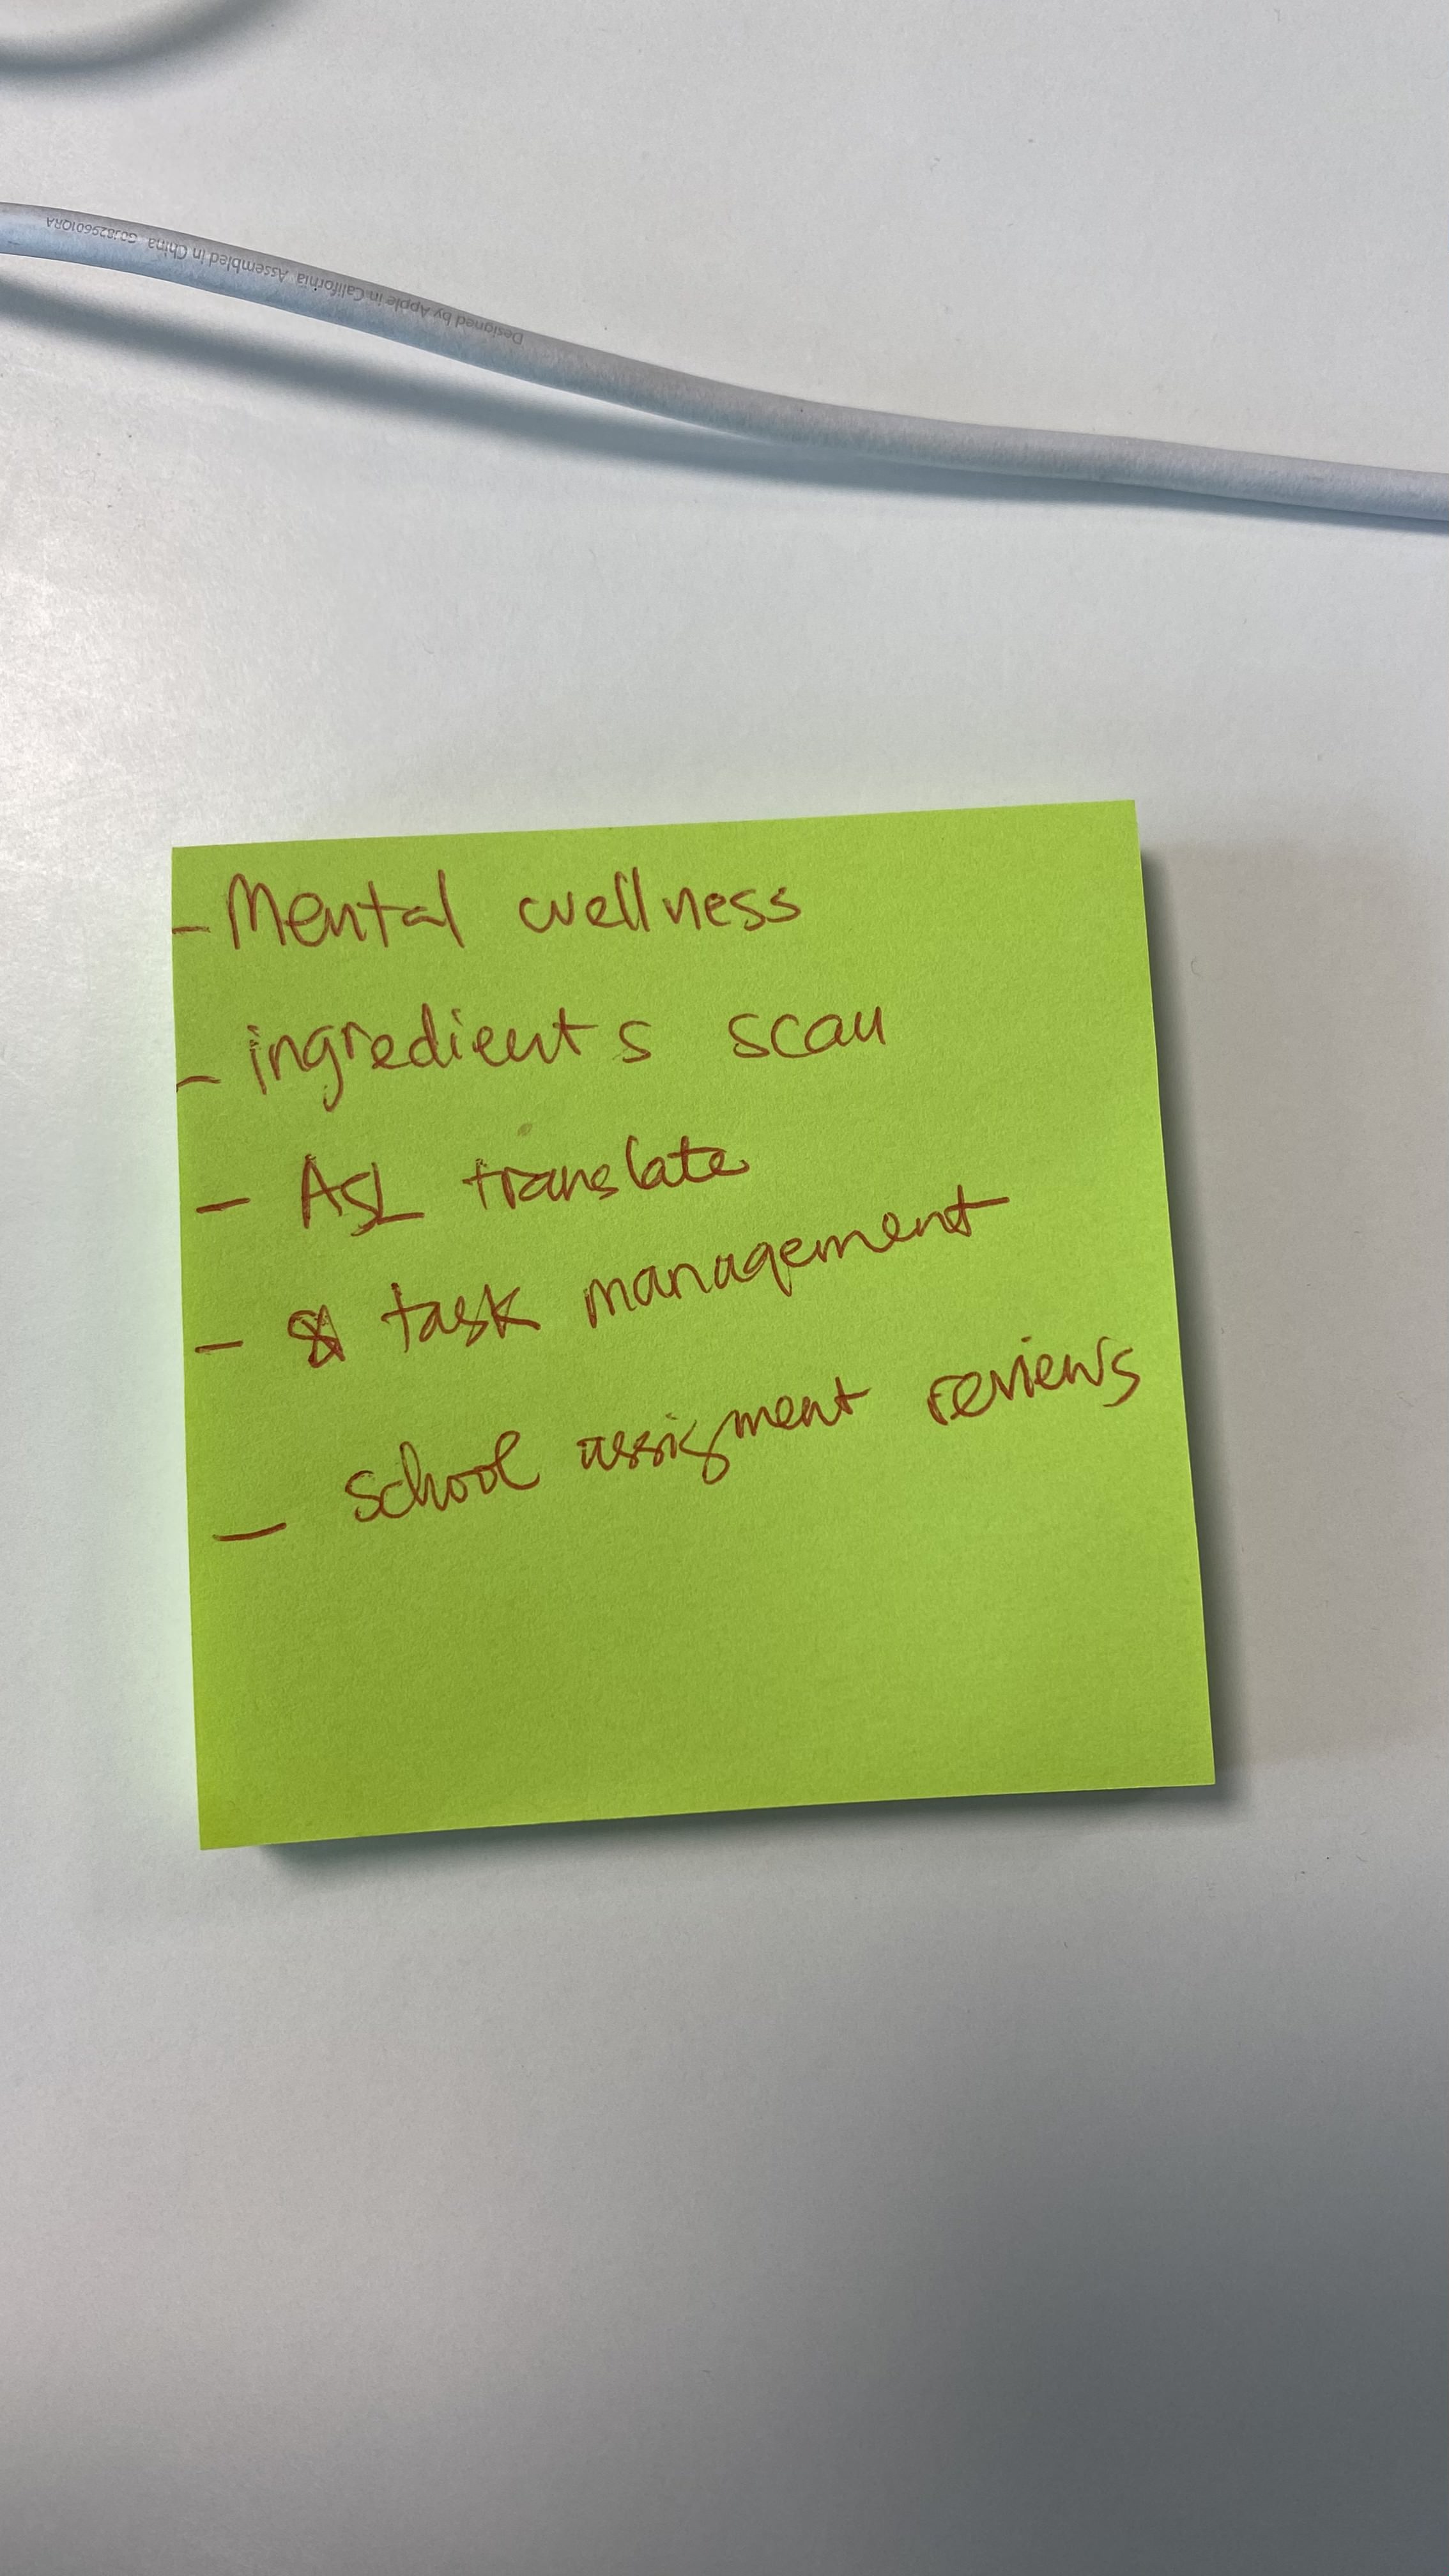 Designed by Apple in California Assembled in China
- Mental wellness
- ingredients scan
- ASL translate
- task management
- school assigment reviews